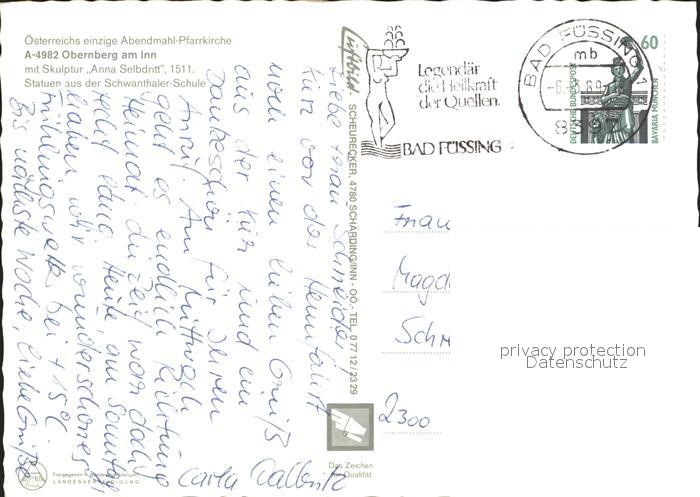 Österreichs einzige Abendmahl-Pfarrkirche
A-4982 Obernberg am Inn
mit Skulptur „Anna Selbdritt", 1511.
Statuen aus der Schwanthaler-Schule
Luftbild
SCHEURECKER, 4780 SCHÄRDING/INN - OÖ. - TEL. 0 77 12 / 23 29
Legendär
die Heilkraft
der Quellen.
BAD FÜSSING
BAD FÜSSING 1
mb
8397
60
DEUTSCHE BUNDESPOST
BAVARIA MÜNCHEN
Liebe Frau Schneider,
kurz vor der Heimfahrt
noch einen lieben Gruß
aus der Kur und ein
Dankeschön für Ihren
Anruf. Am Mittwoch
geht es endlich Richtung
Heimat die Zeit war dann
lang. Heute, am Sonntag
haben wir wunderschönes
Frühlingswetter bei + 15°C
Bis nächste Woche, liebe Grüße
Carla
Frau
Magd
Sch
2300
Das Zeichen
für Qualität
Freigegeben v.
LANDESVERTEIDIGUNG
privacy protection
Datenschutz